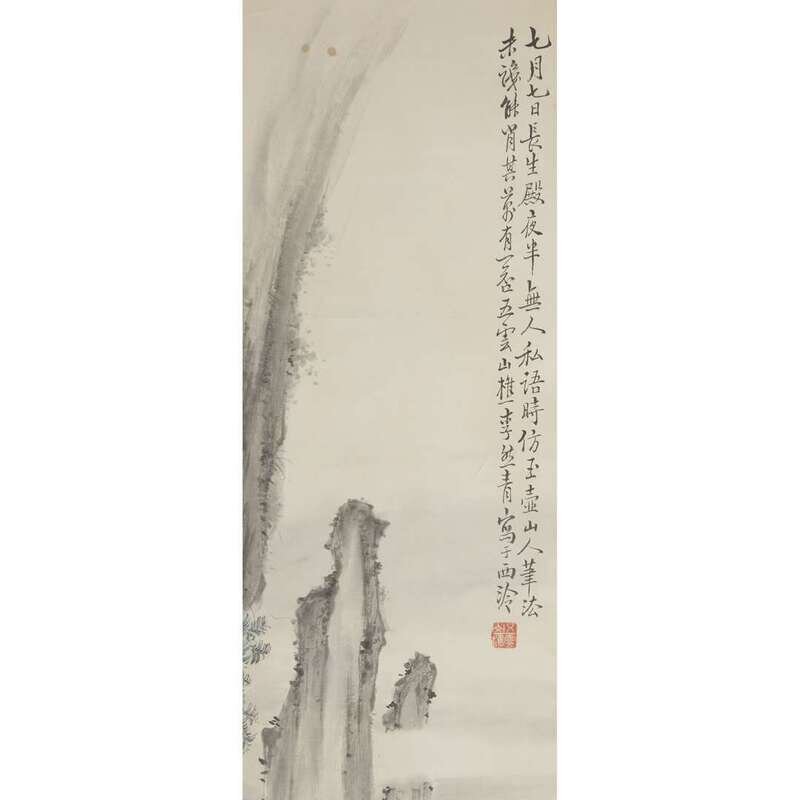 七月七日長生殿夜半無人私語時仿玉壺山人筆法
未識能肖其萬有一否五雲山樵李然青寫于西泠